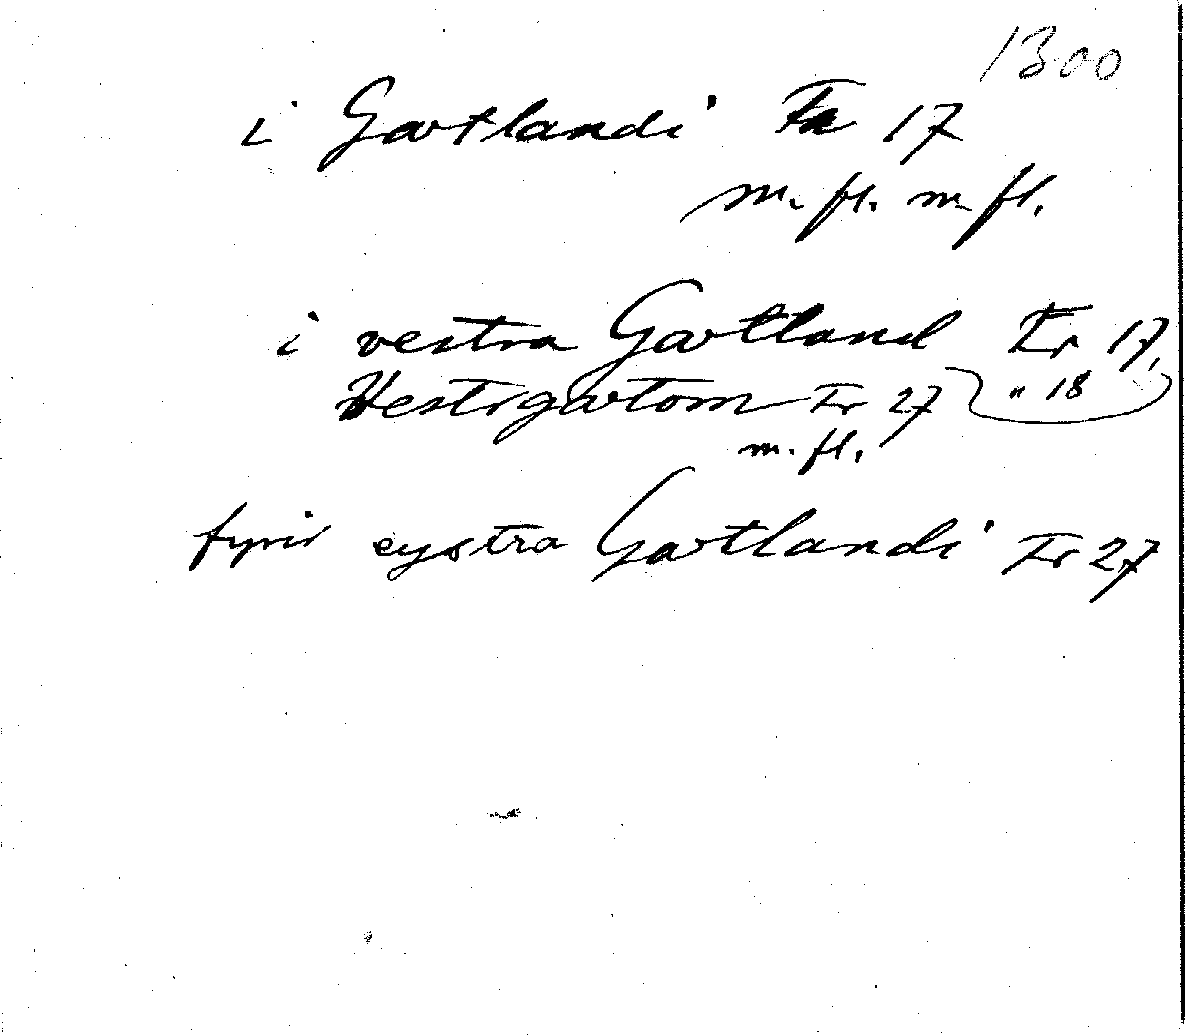 1300
i Gautlandi Fr 17
m. fl. m fl.
i vestra Gautland Fr 17,
Vestrgautom Fr 27 " 18
m. fl.
fyrir eystra Gautlandi Fr 27